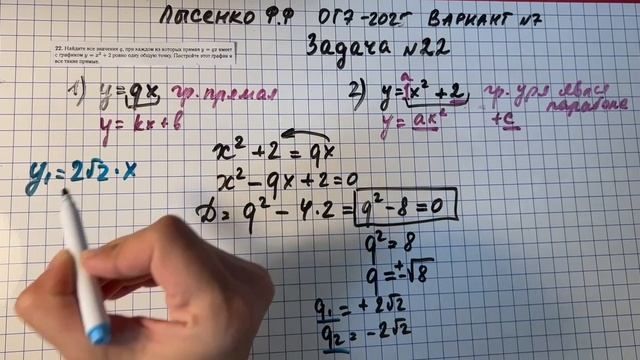 Лысенко Ф.Ф ОГЭ-2025 Вариант №7
Задача №22
22. Найдите все значения q, при каждом из которых прямая y = qx имеет
с графиком y = x² + 2 ровно одну общую точку. Постройте этот график и
все такие прямые.
1) y = qx гр. прямая
y = kx + b
2) y = 1x² + 2 гр. ур-я явл-ся
парабола
y = ax² + c
x² + 2 = qx
x² - qx + 2 = 0
D = q² - 4·2 = q² - 8 = 0
q² = 8
q = ±√8
q₁ = +2√2
q₂ = -2√2
y₁ = 2√2·x